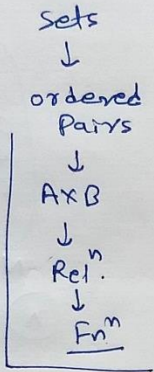 Sets
↓
ordered
Pairs
↓
A×B
↓
Relⁿ.
↓
Fnⁿ